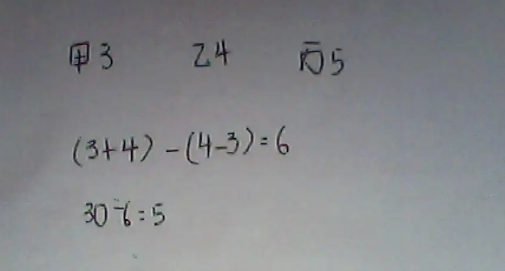 甲3 乙4 丙5
(3+4)-(4-3)=6
30÷6=5